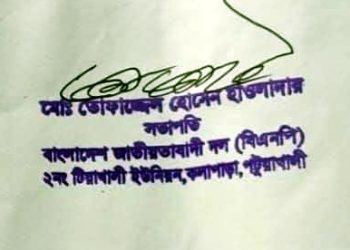 মোঃ তোফাজ্জেল হোসেন হাওলাদার
সভাপতি
বাংলাদেশ জাতীয়তাবাদী দল (বিএনপি)
২নং টিয়াখালী ইউনিয়ন, কলাপাড়া, পটুয়াখালী